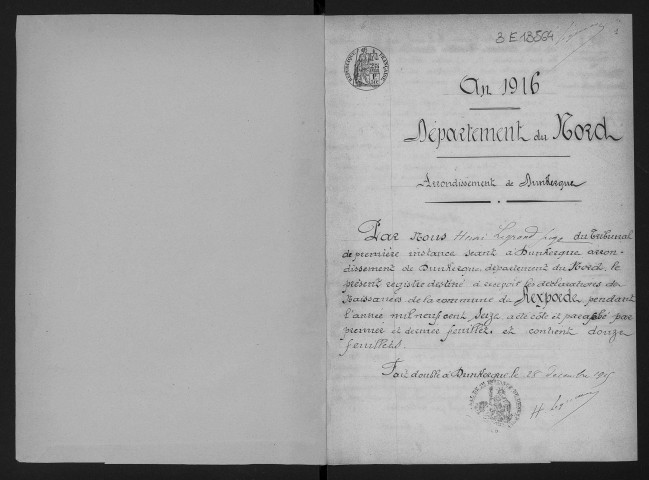 3 E 13564
An 1916
Département du Nord
Arrondissement de Dunkerque
Par Nous Henri Legrand juge du Tribunal
de première instance séant à Dunkerque arron-
dissement de Dunkerque, département du Nord, le
présent registre destiné à recevoir les déclarations de
Naissances de la commune de Rexpoede pendant
l'année mil neuf cent seize a été coté et paraphé par
première et dernière feuillet et contient douze
feuillets.
Fait double à Dunkerque le 28 décembre 1915